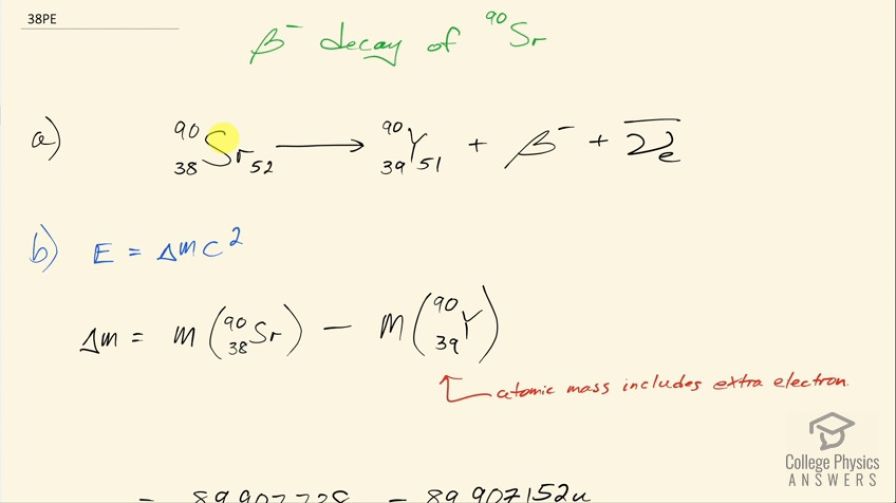 38PE
β⁻ decay of ⁹⁰Sr
a) ⁹⁰₃₈Sr₅₂ ⟶ ⁹⁰₃₉Y₅₁ + β⁻ + ν̅ₑ
b) E = Δmc²
Δm = m(⁹⁰₃₈Sr) − m(⁹⁰₃₉Y)
atomic mass includes extra electron
= 89.907738 − 89.907152u
College Physics
ANSWERS